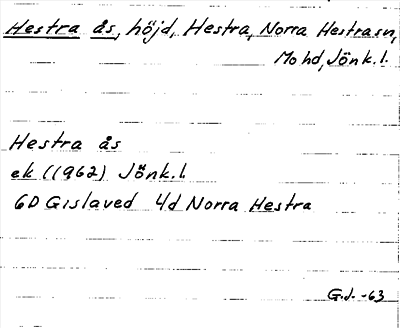 Hestra ås, höjd, Hestra, Norra Hestrasn,
Mohd, Jönk.l.
Hestra ås
ek (1962) Jönk.l.
6D Gislaved 4d Norra Hestra
G.J. -63